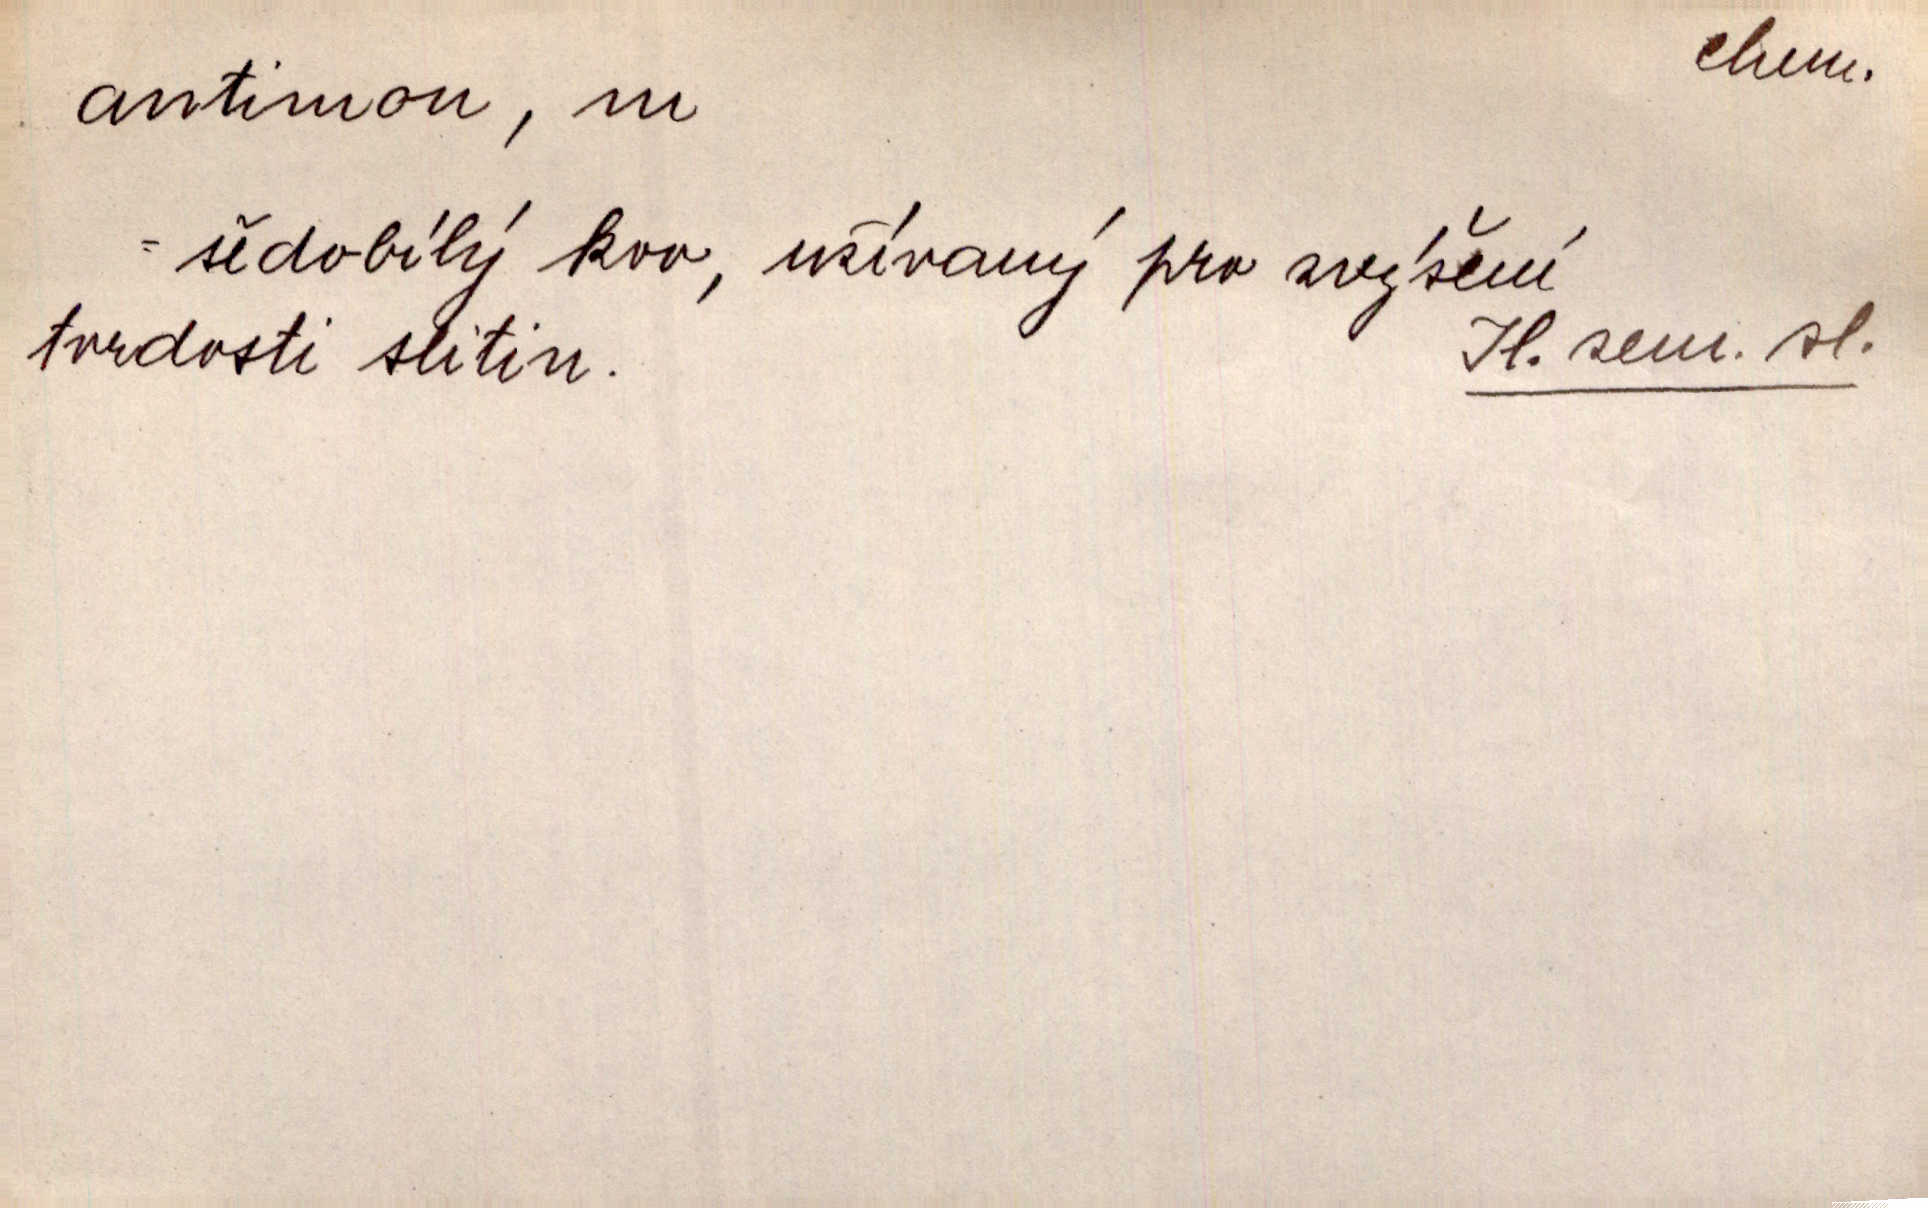 chem.
antimon, m
= šedobílý kov, užívaný pro zvýšení
tvrdosti slitin.
Il. sem. sl.